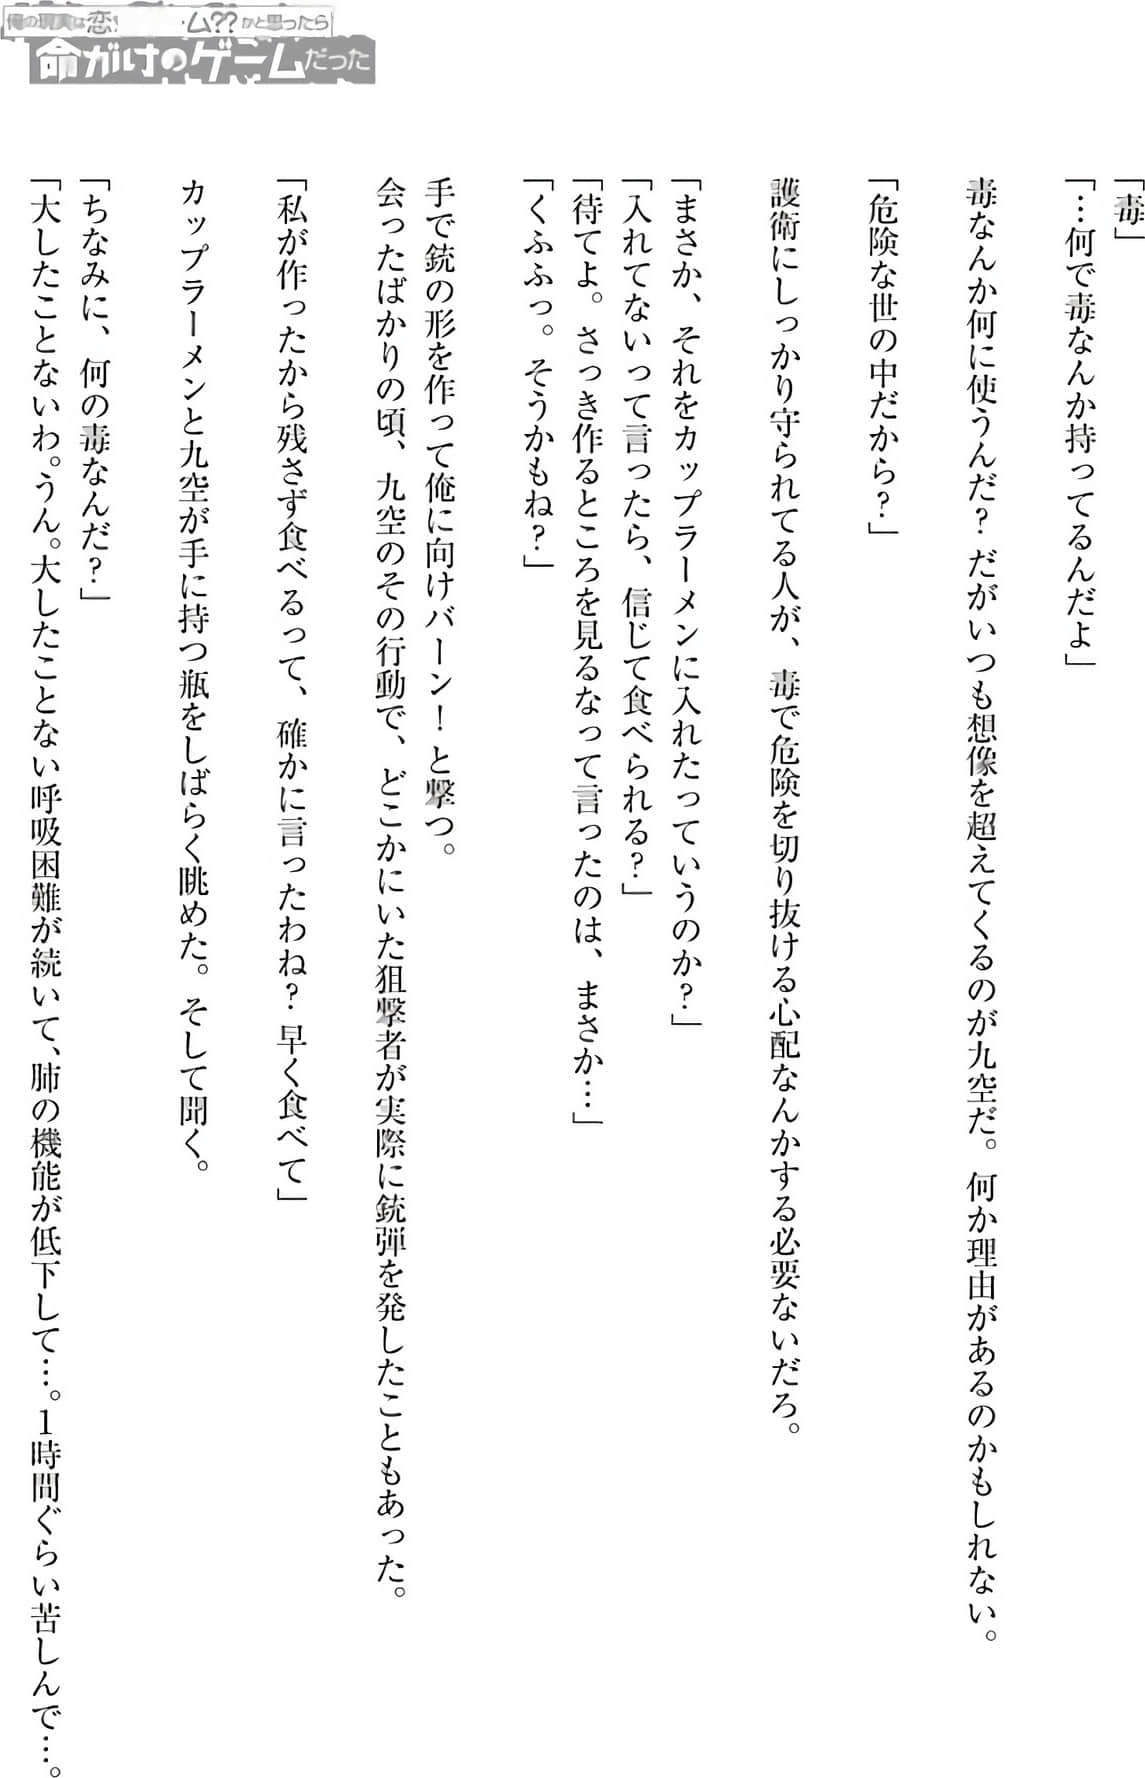 俺の現実は恋ム??かと思ったら
命がけのゲームだった
「毒」
「…何で毒なんか持ってるんだよ」
毒なんか何に使うんだ？ だがいつも想像を超えてくるのが九空だ。何か理由があるのかもしれない。
「危険な世の中だから？」
護衛にしっかり守られてる人が、毒で危険を切り抜ける心配なんかする必要ないだろ。
「まさか、それをカップラーメンに入れたっていうのか？」
「入れてないって言ったら、信じて食べられる？」
「待てよ。さっき作るところを見るなって言ったのは、まさか…」
「くふふっ。そうかもね？」
手で銃の形を作って俺に向けバーン！ と撃つ。
会ったばかりの頃、九空のその行動で、どこかにいた狙撃者が実際に銃弾を発したこともあった。
「私が作ったから残さず食べるって、確かに言ったわね？ 早く食べて」
カップラーメンと九空が手に持つ瓶をしばらく眺めた。そして聞く。
「ちなみに、何の毒なんだ？」
「大したことないわ。うん。大したことない呼吸困難が続いて、肺の機能が低下して…。1時間ぐらい苦しんで…。